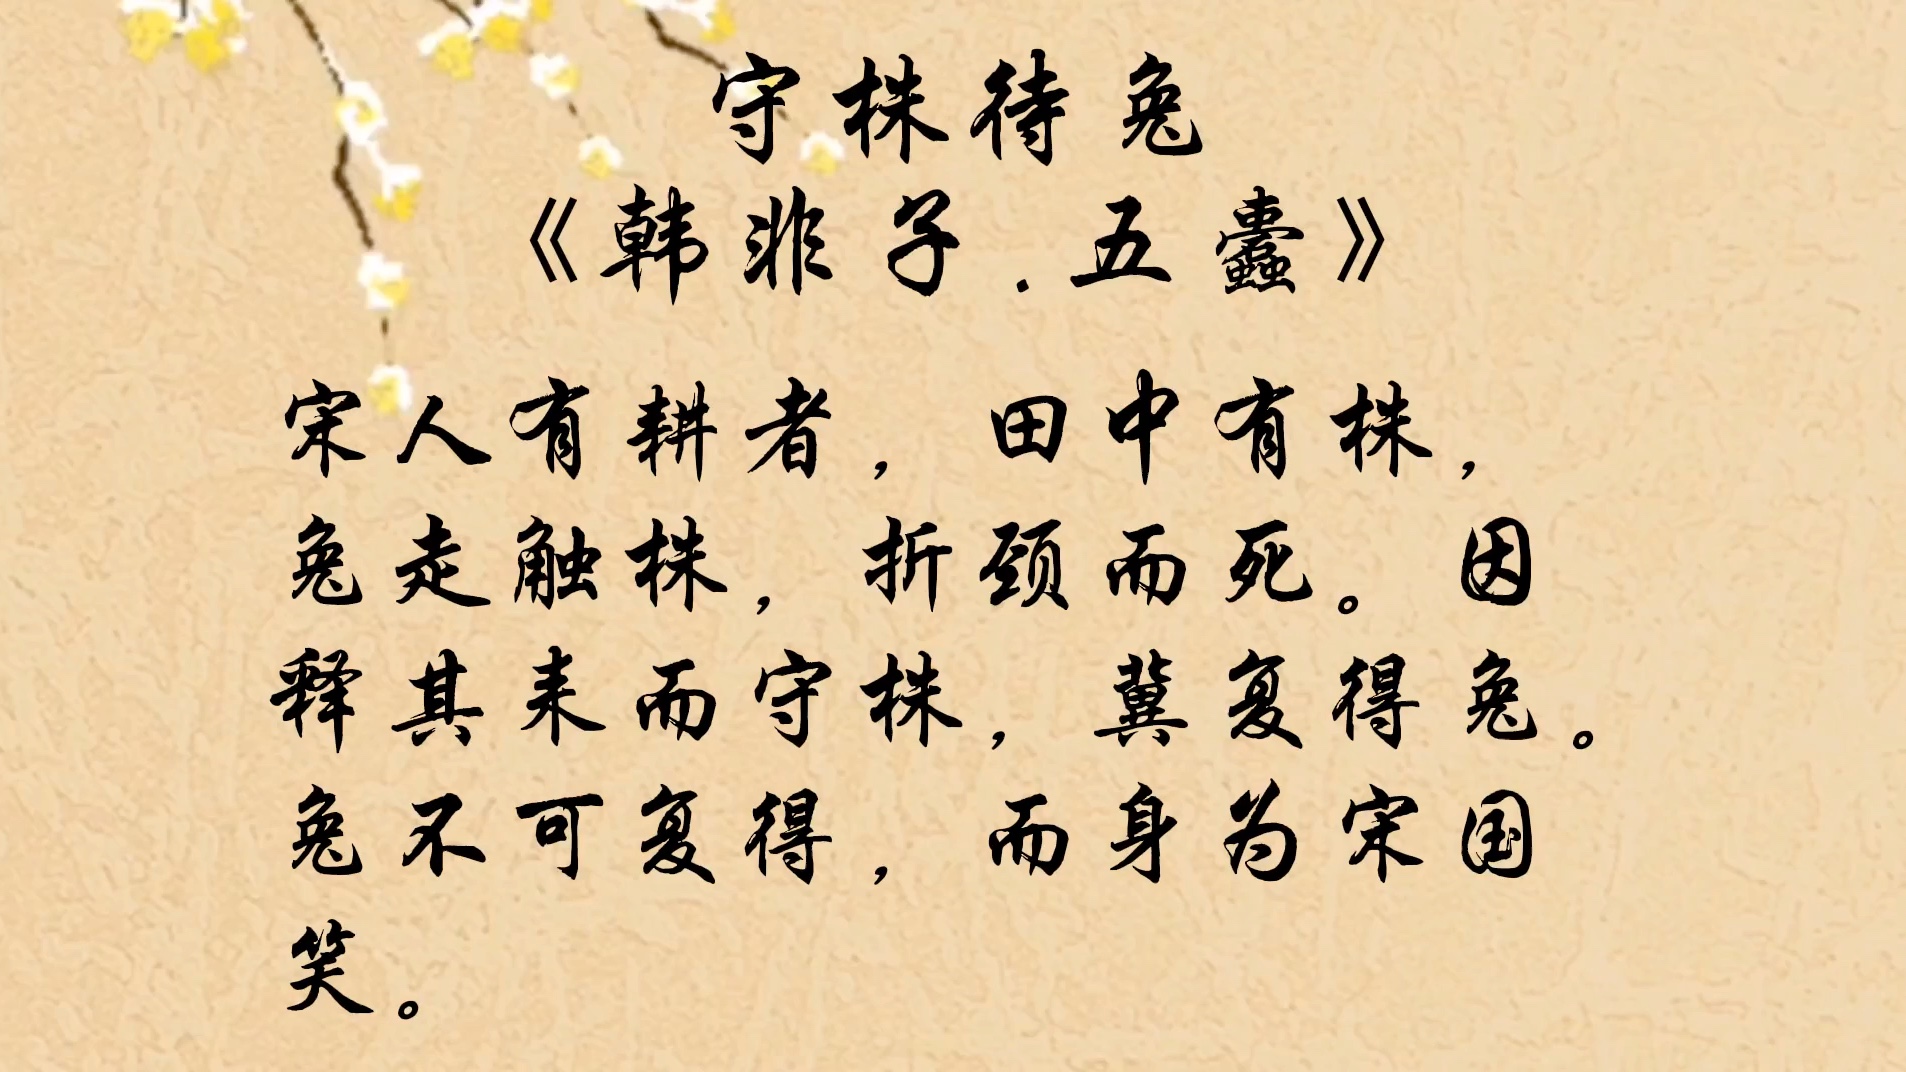 守株待兔
《韩非子.五蠹》
宋人有耕者，田中有株，
兔走触株，折颈而死。因
释其耒而守株，冀复得兔。
兔不可复得，而身为宋国
笑。